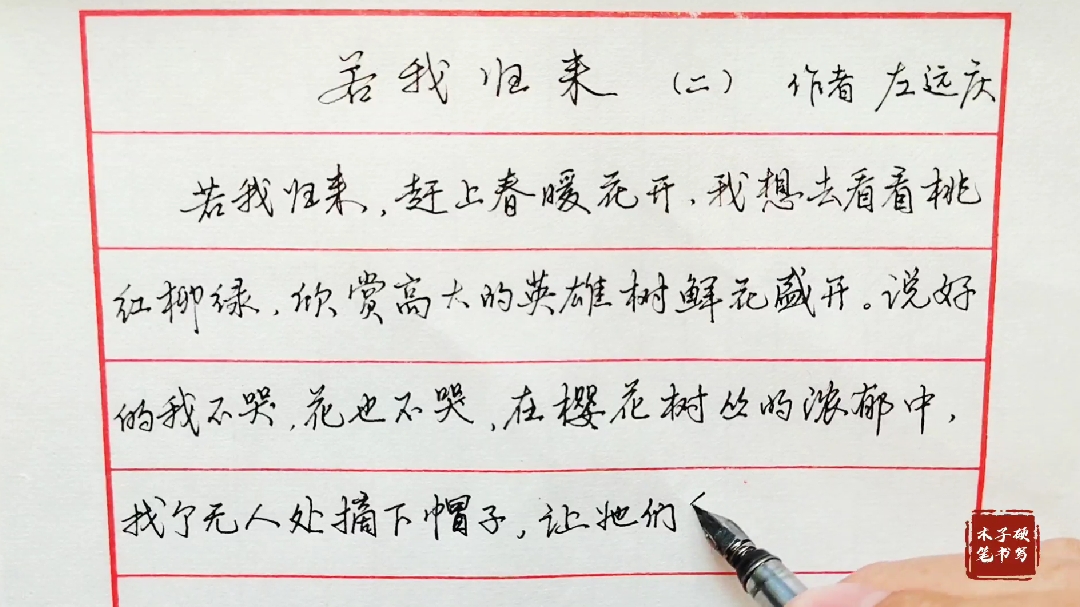 若我归来 (二) 作者 左远庆
若我归来,赶上春暖花开,我想去看看桃
红柳绿,欣赏高大的英雄树鲜花盛开。说好
的我不哭,花也不哭,在樱花树丛的浓郁中,
找个无人处摘下帽子,让她们
木子硬
笔书写